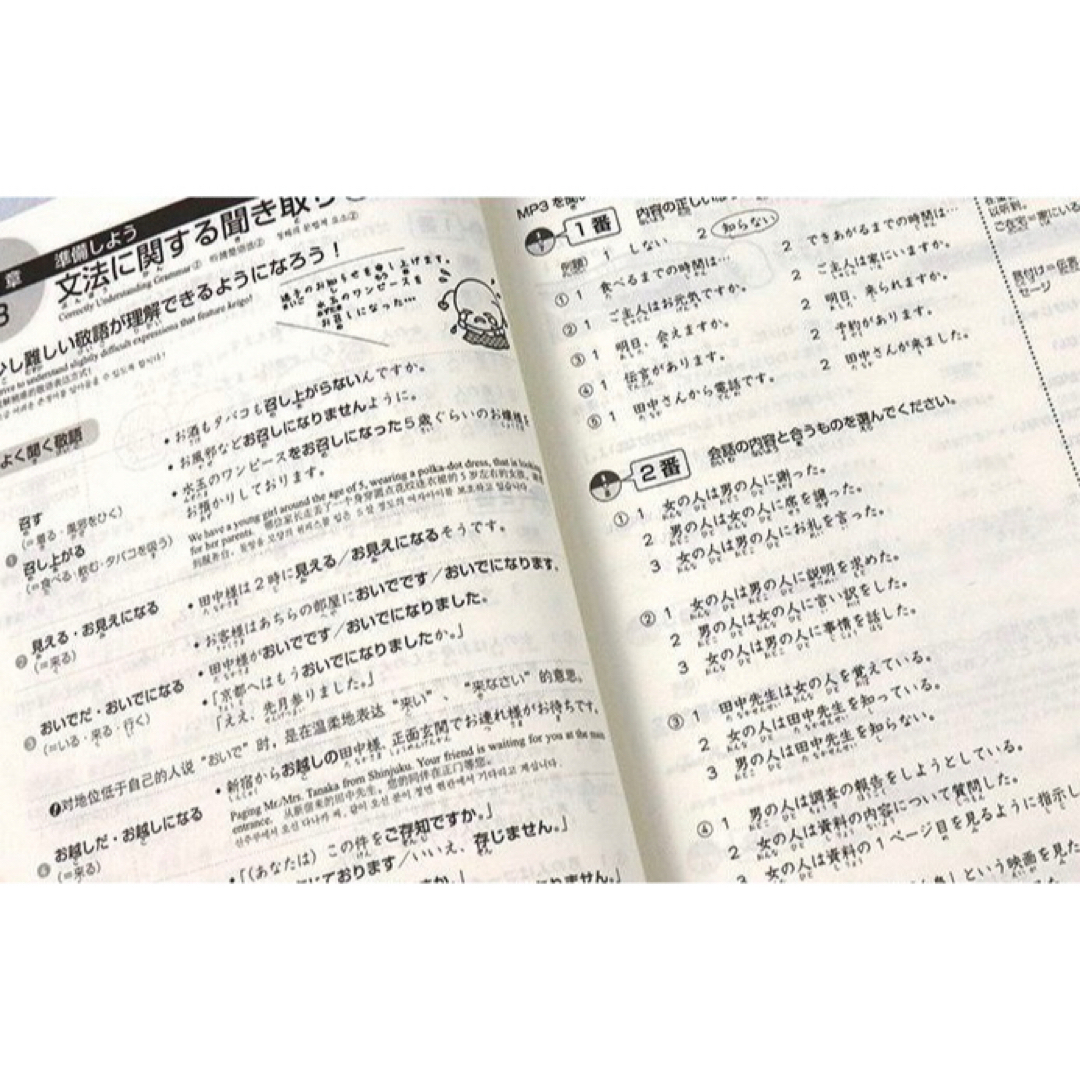 章 準備しよう
文法に関する聞き取り
Correctly Understanding Grammar ②
少し難しい敬語が理解できるようになろう！
to understand slightly difficult expressions that feature keigo!
迷子のお知らせを申し上げます。
水玉のワンピースを
お召しになった…
よく聞く敬語
① 召す
(＝着る・風邪をひく)
召し上がる
(＝食べる・飲む・タバコを吸う)
・お酒もタバコも召し上がらないんですか。
・お風邪などお召しになりませんように。
・水玉のワンピースをお召しになった5歳ぐらいのお嬢様を
お預かりしております。
We have a young girl around the age of 5, wearing a polka-dot dress, that is looking
for her parents.
② 見える・お見えになる
(＝来る)
・田中様は2時に見える／お見えになるそうです。
③ おいでだ・おいでになる
(＝いる・来る・行く)
・お客様はあちらの部屋においでです／おいでになります。
・田中様がおいでです／おいでになりました。
・「京都へはもうおいでになりましたか。」
「ええ、先月参りました。」
对地位低于自己的人说“おいで”时，是在温柔地表达“来い”、“来なさい”的意思。
④ お越しだ・お越しになる
(＝来る)
・新宿からお越しの田中様、正面玄関でお連れ様がお待ちです。
Paging Mr./Mrs. Tanaka from Shinjuku. Your friend is waiting for you at the main
entrance. 从新宿来的田中先生，您的同伴在正门等您。
・「(あなたは) この件をご存知ですか。」
ております／いいえ、存じません。」
MP3 を
1番
内容の正しい
例題 1 しない 2 知らない
① 1 食べるまでの時間は… 2 できあがるまでの時間は…
② 1 ご主人はお元気ですか。 2 ご主人は家にいますか。
③ 1 明日、会えますか。 2 明日、来られますか。
④ 1 伝言があります。 2 予約があります。
⑤ 1 田中さんから電話です。 2 田中さんが来ました。
2番
会話の内容と合うものを選んでください。
① 1 女の人は男の人に謝った。
2 男の人は女の人に席を譲った。
3 女の人は男の人にお礼を言った。
② 1 女の人は男の人に説明を求めた。
2 男の人は女の人に言い訳をした。
3 女の人は男の人に事情を話した。
③ 1 田中先生は女の人を覚えている。
2 女の人は田中先生を知っている。
3 男の人は田中先生を知らない。
④ 1 男の人は調査の報告をしようとしている。
2 女の人は資料の内容について質問した。
3 女の人は資料の1ページ目を見るように指示し
」という映画を見た